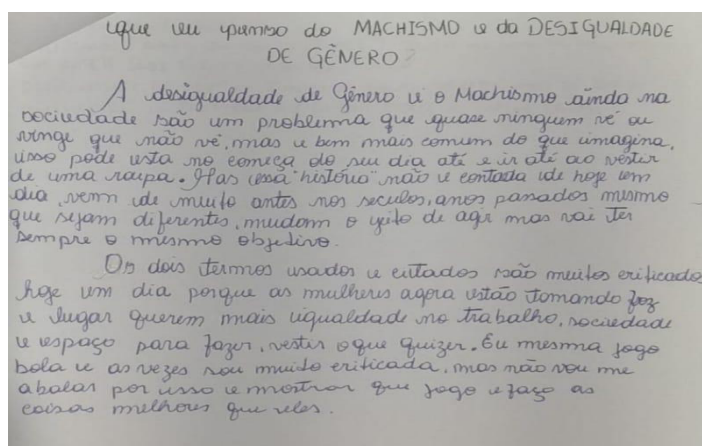 que eu penso do MACHISMO e da DESIGUALDADE
DE GÊNERO?
A desigualdade de Gênero e o Machismo ainda na
sociedade são um problema que quase ninguem vê ou
vinge que não vê, mas e bem mais comum do que imagina,
isso pode esta no começa do seu dia até e ir até ao vestir
de uma roupa. Mas essa "história" não e contada de hoje em
dia, vem de muito antes nos seculos, anos passados mesmo
que sejam diferentes, mudam o jeito de agir mas vai ter
sempre o mesmo objetivo.
Os dois termos usados e citados são muitos criticado
hoje em dia porque as mulheres agora estão tomando foz
e lugar querem mais igualdade no trabalho, sociedade
e espaço para fazer, vestir o que quizer. Eu mesma jogo
bola e as vezes sou muito criticada, mas não vou me
abalar por isso e mostrar que jogo e faço as
coisas melhores que eles.